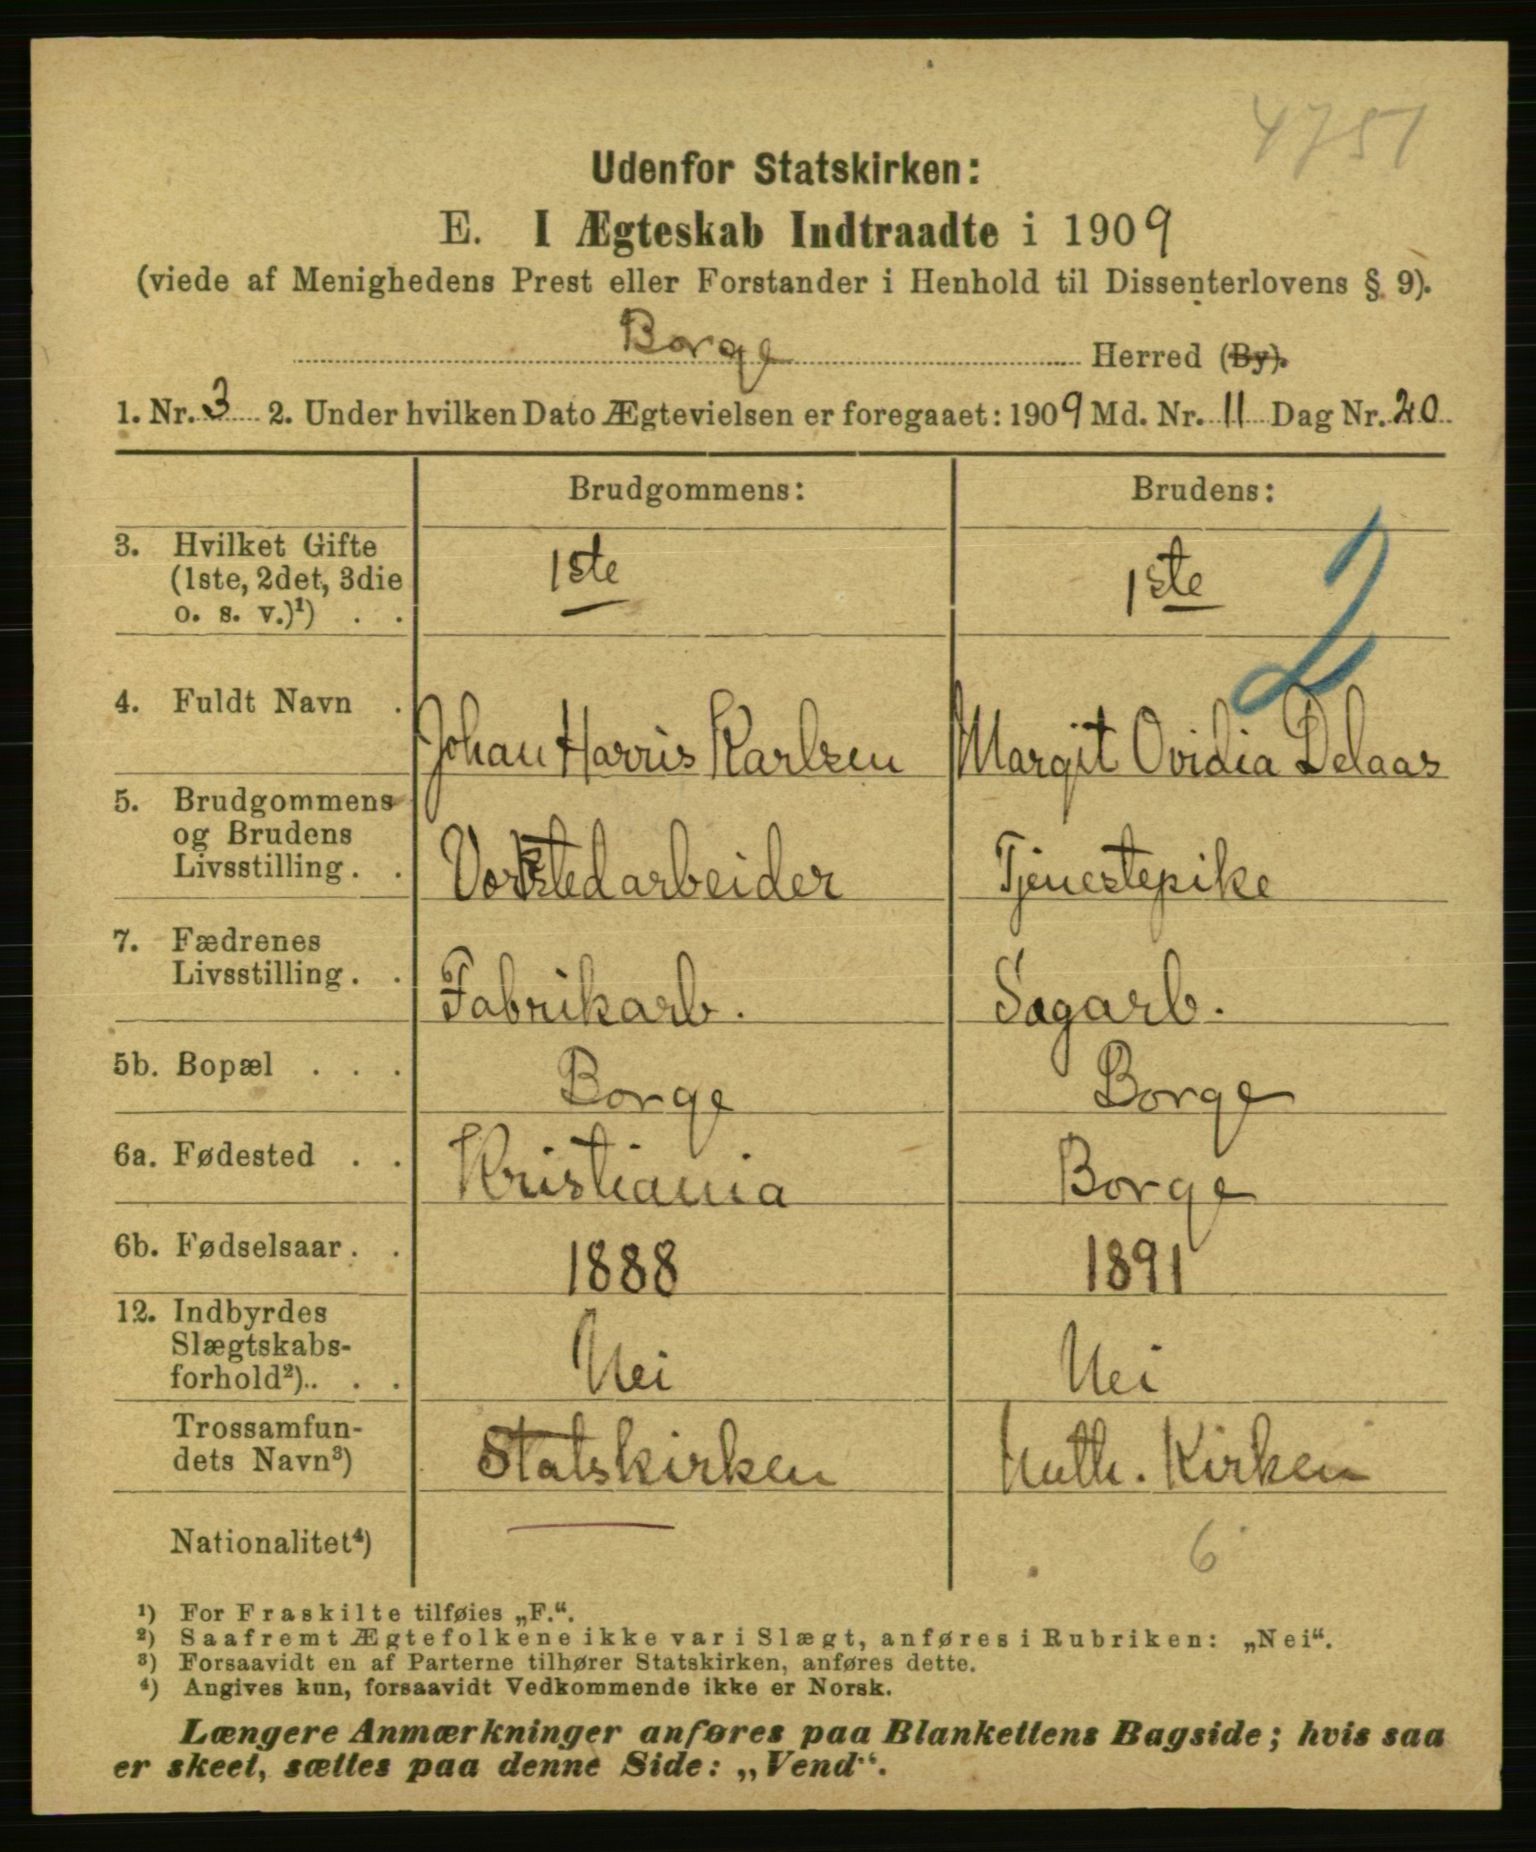 4751
Udenfor Statskirken:
E. I Ægteskab Indtraadte i 1909
(viede af Menighedens Prest eller Forstander i Henhold til Dissenterlovens § 9).
Borge Herred (By).
1. Nr. 3 2. Under hvilken Dato Ægtevielsen er foregaaet: 1909 Md. Nr. 11 Dag Nr. 20
Brudgommens: Brudens:
3. Hvilket Gifte
(1ste, 2det, 3die
o. s. v.)¹) . .
1ste 1ste
2
4. Fuldt Navn .
Johan Harris Karlsen Margit Ovidia Delaas
5. Brudgommens
og Brudens
Livsstilling . .
Verkstedarbeider Tjenestepike
7. Fædrenes
Livsstilling . .
Fabrikarb. Sagarb.
5b. Bopæl . . . Borge Borge
6a. Fødested . . Kristiania Borge
6b. Fødselsaar . . 1888 1891
12. Indbyrdes
Slægtskabs-
forhold²) . . .
Nei Nei
Trossamfun-
dets Navn³)
Statskirken Kirken
Nationalitet⁴)
6
¹) For Fraskilte tilføies „F.“.
²) Saafremt Ægtefolkene ikke var i Slægt, anføres i Rubriken: „Nei“.
³) Forsaavidt en af Parterne tilhører Statskirken, anføres dette.
⁴) Angives kun, forsaavidt Vedkommende ikke er Norsk.
Længere Anmærkninger anføres paa Blankettens Bagside; hvis saa
er skeet, sættes paa denne Side: „Vend“.